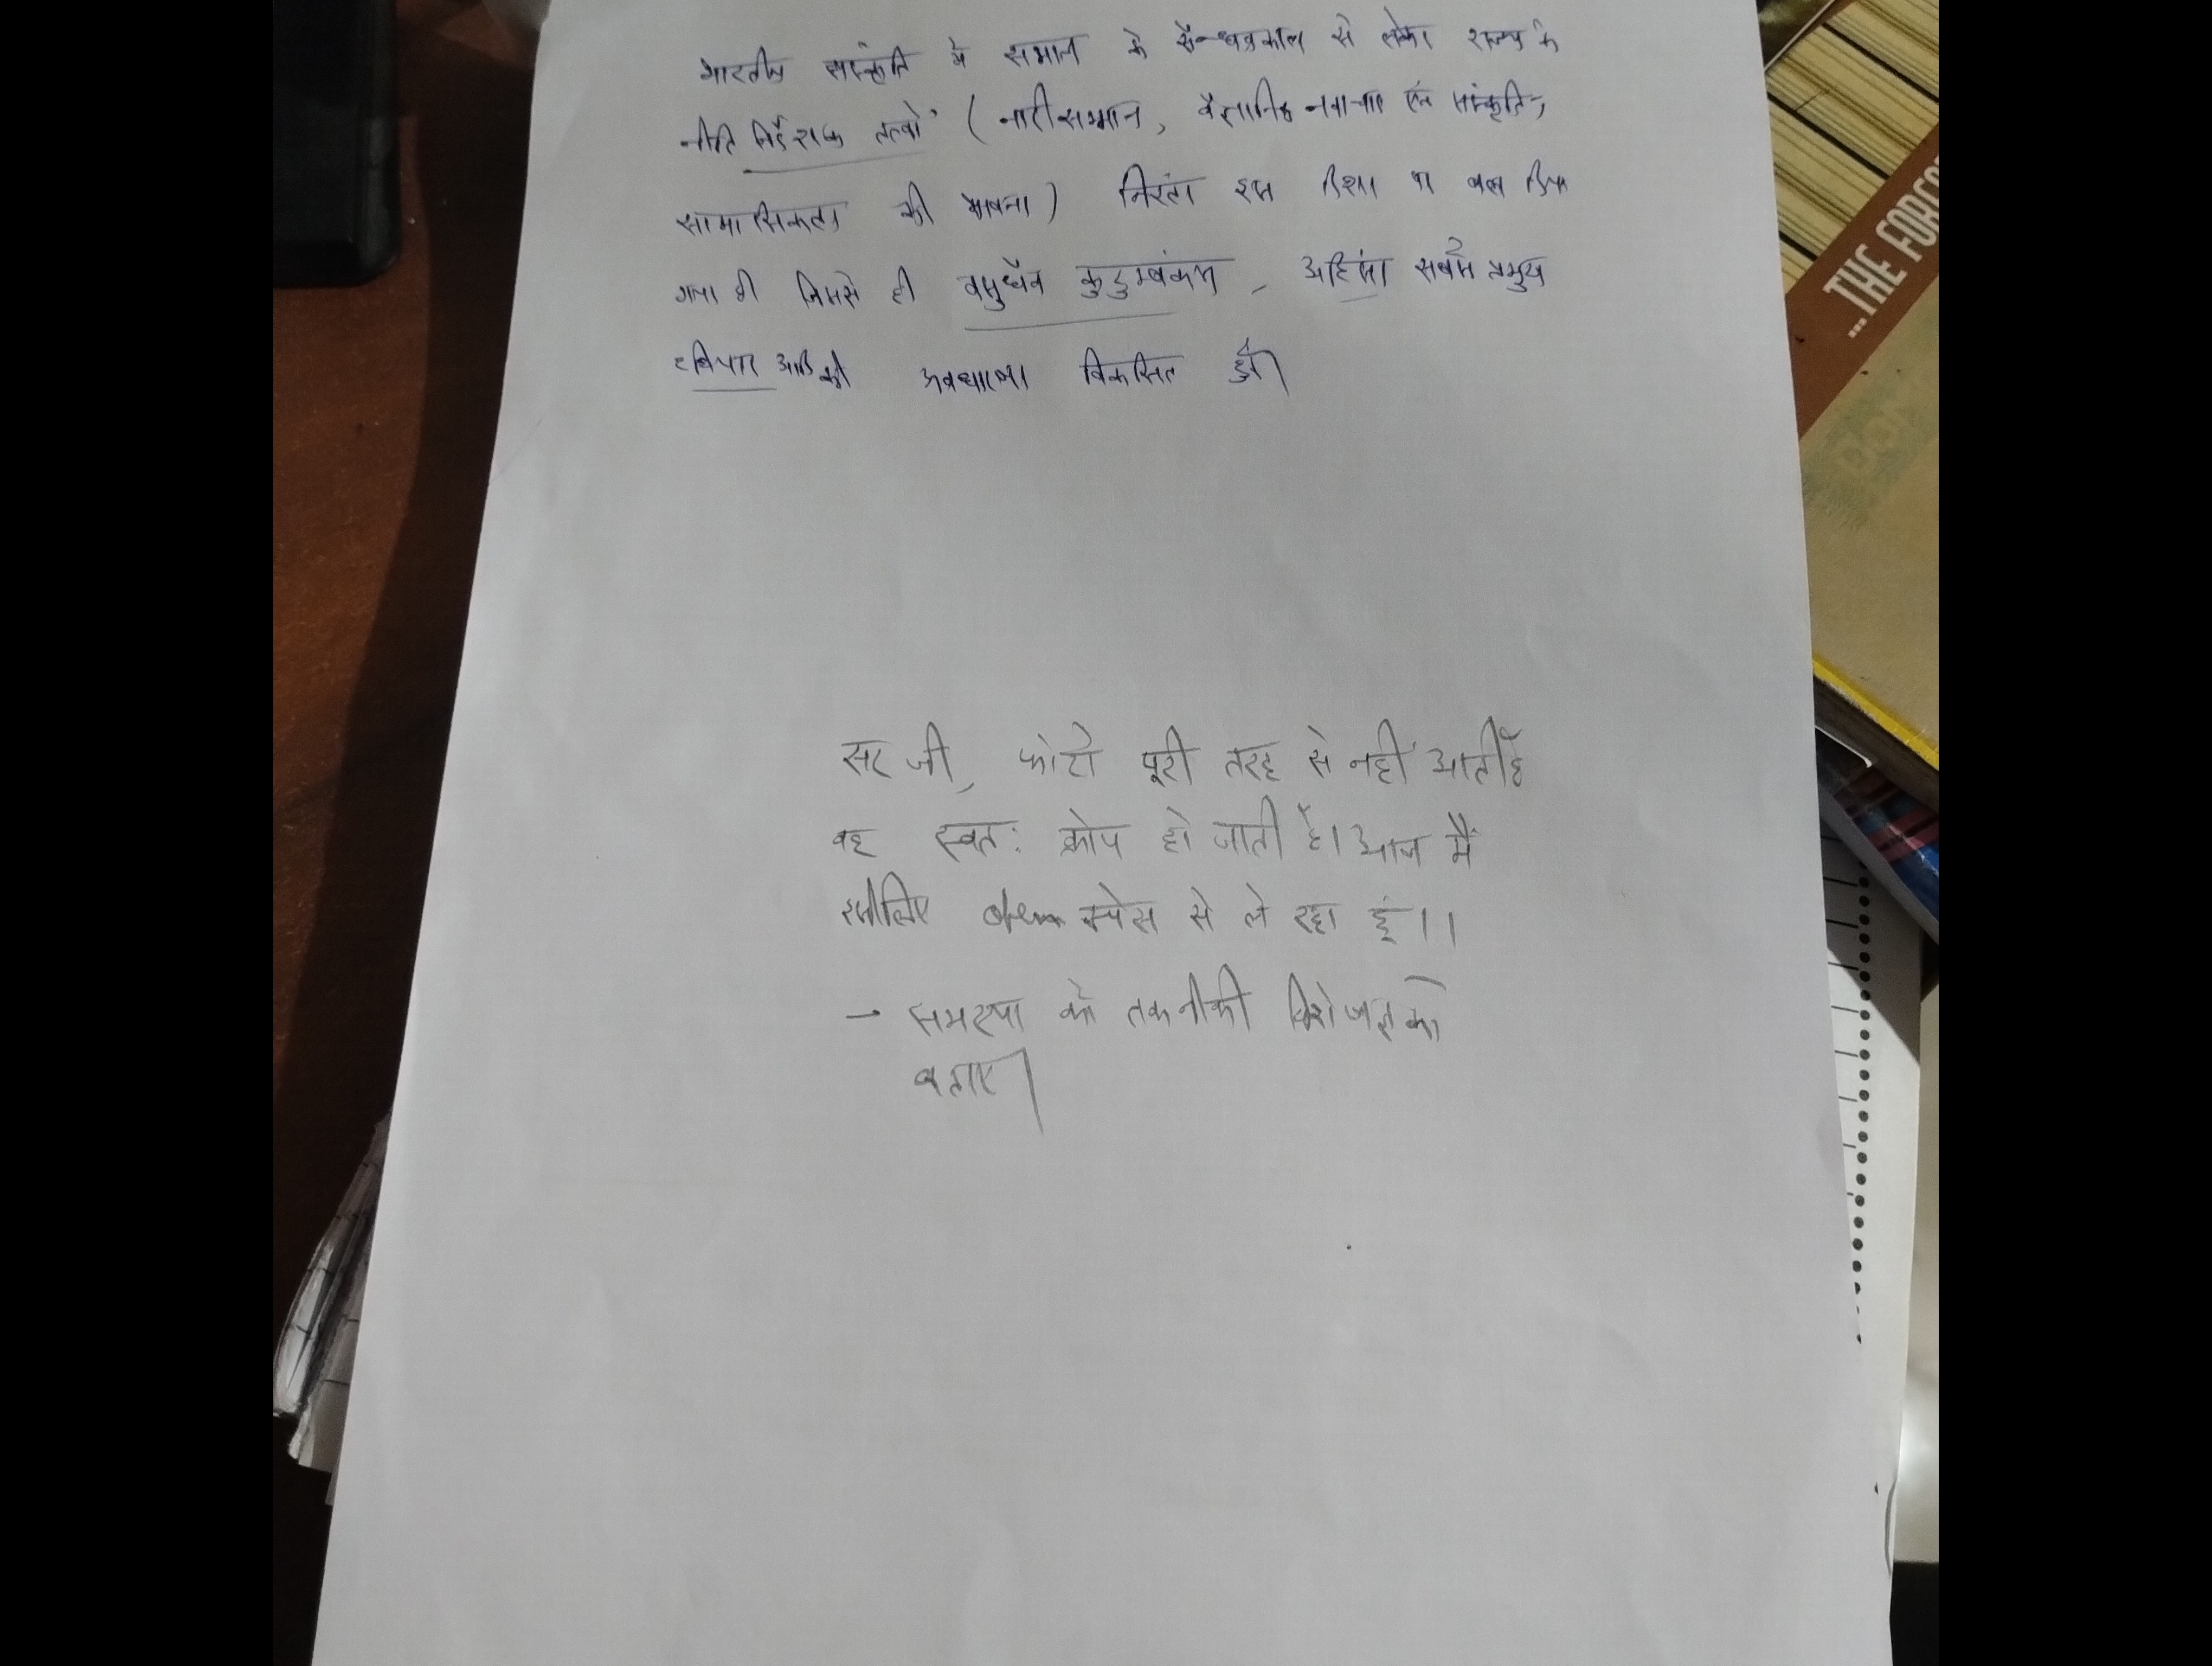 भारतीय संस्कृति में समाज के सैन्धवकाल से लेकर राज्य के
नीति निर्देशक तत्वों (नारी सम्मान, वैज्ञानिक नवाचार एवं संस्कृति,
सामासिकता की भावना) निरंतर इस दिशा पर बल दिया
गया है जिससे ही वसुधैव कुटुम्बकम, अहिंसा सबसे प्रमुख
हथियार आदि की अवधारणा विकसित हुई।
सर जी, फोटो पूरी तरह से नहीं आती है
वह स्वत: क्रोप हो जाती है। आज मैं
इसीलिए open स्पेस से ले रहा हूं।।
→ समस्या को तकनीकी विशेषज्ञ को
बताएं।
...THE FORC